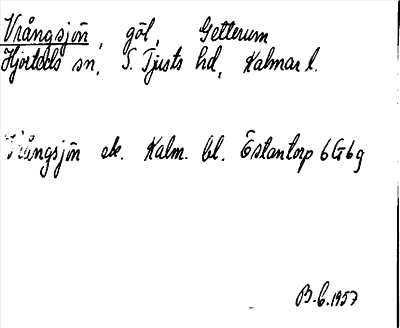 Vrångsjön, göl, Getterum
Hjorteds sn, S. Tjusts hd, Kalmar l.
Vrångsjön ek. Kalm. bl. Östantorp 6G6g
B.C. 1957